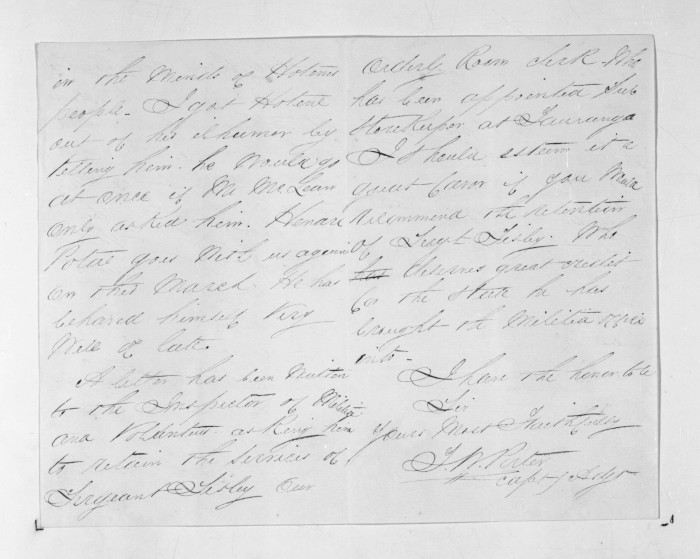 in the Minds of Hotene's
people. I got Hotene
out of his ilhumor by
telling him. he would go
at once if Mr McLean
only asked him. Henare
Potae goes with us again
on this March. He has
behaved himself very
Well of late.
A letter has been written
to the Inspector of Militia
and Volunteers asking him
to retain the services of
Sergeant Sisley Our
Orderly Room Clerk Who
has been appointed Sub
Storekeeper at Tauranga
I should esteem it a
great favor if you would
recommend the retention
of Sergt Sisley. Who
deserves great credit
for the state he has
brought the Militia
into.
I have the honor to be
Sir
Yours Most Faithfully
J. W. Porter
Capt & Adjt